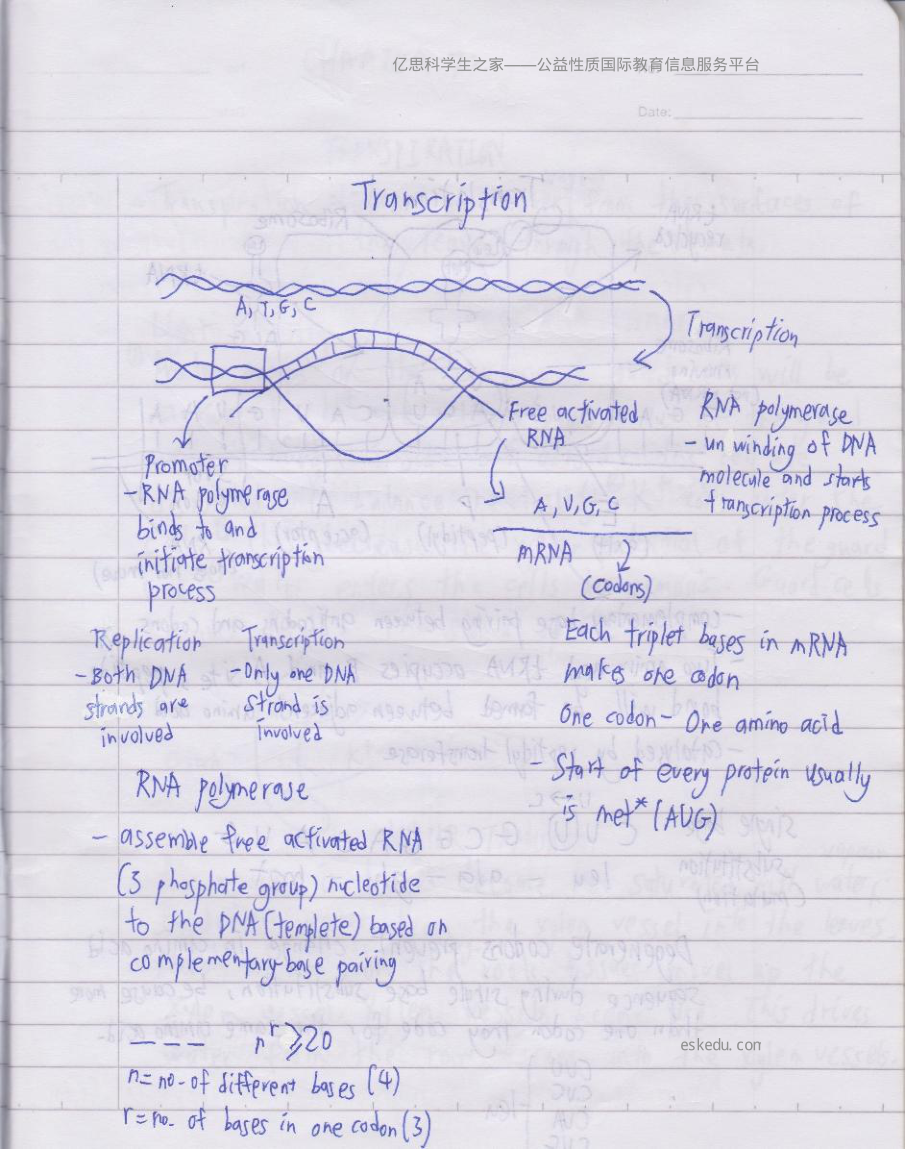 亿思科学生之家——公益性质国际教育信息服务平台
Date:
Transcription
A, T, G, C
Transcription
Promoter
- RNA polymerase
binds to and
initiate transcription
process
Free activated
RNA
A, U, G, C
mRNA
(codons)
RNA polymerase
- un winding of DNA
molecule and starts
transcription process
Replication
- Both DNA
strands are
involved
Transcription
- Only one DNA
strand is
involved
Each triplet bases in mRNA
makes one codon
One codon - One amino acid
- Start of every protein usually
is met* (AUG)
RNA polymerase
- assemble free activated RNA
(3 phosphate group) nucleotide
to the DNA (templete) based on
complementary-base pairing
— — — n^r ⩾ 20
n = no. of different bases (4)
r = no. of bases in one codon (3)
eskedu.com